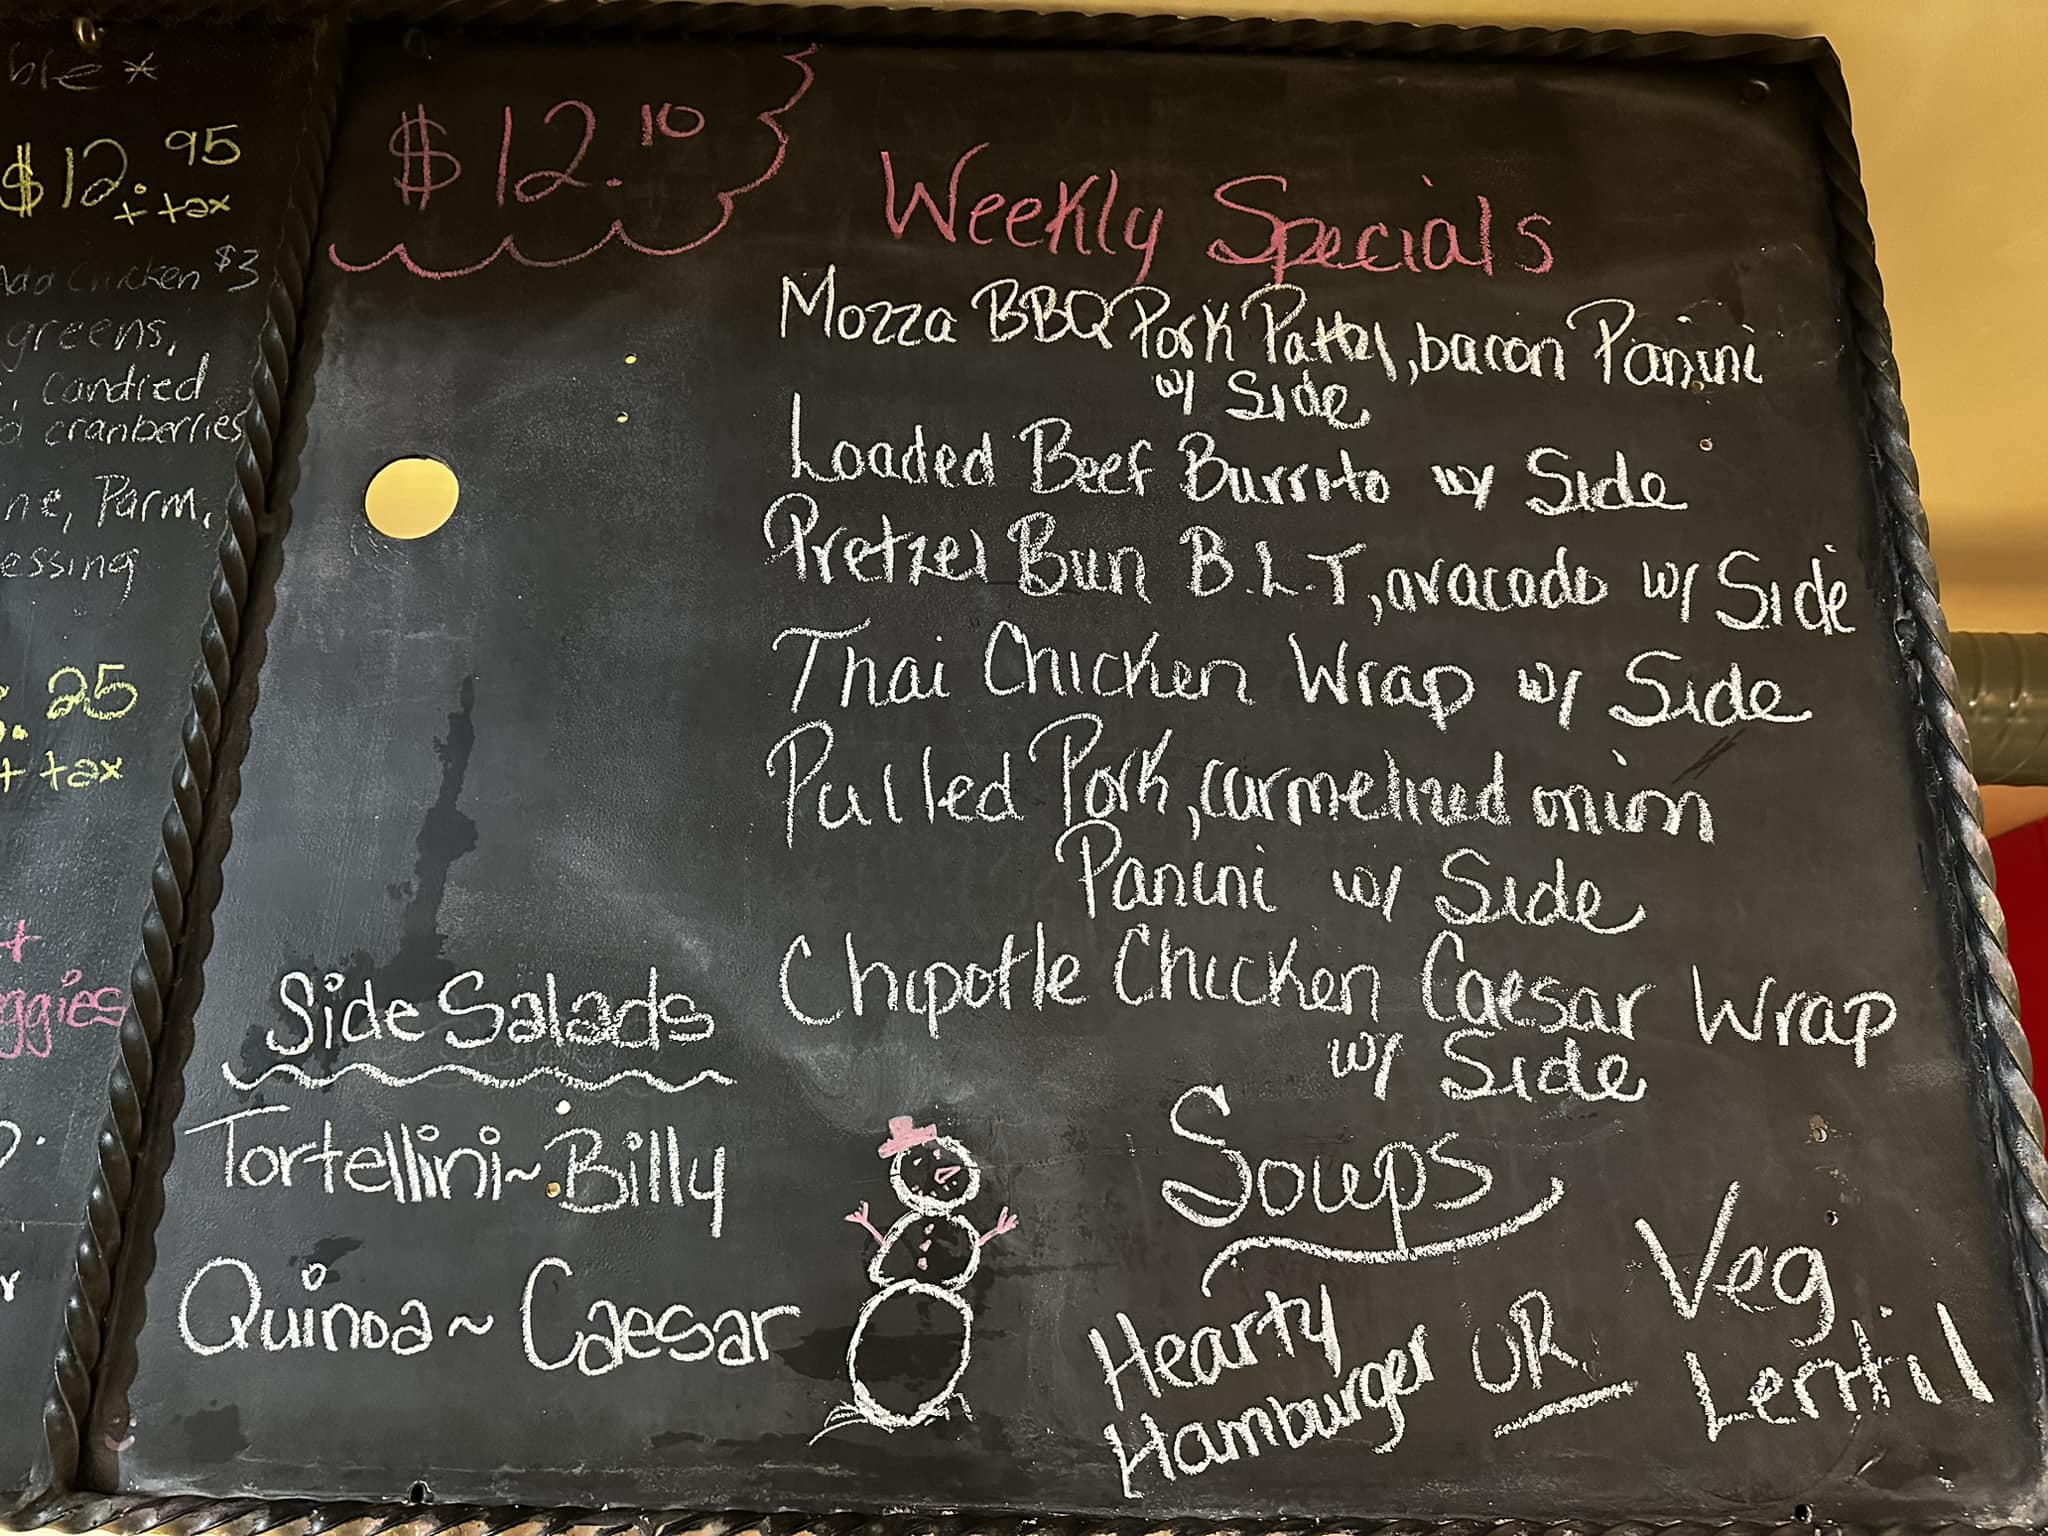 ble *
$12.95
+ tax
Add Chicken $3
greens,
, candied
cranberries
ne, Parm,
essing
.25
+ tax
+
ggies
$12.10
Weekly Specials
Mozza BBQ Pork Patty, bacon Panini
w/ Side
Loaded Beef Burrito w/ Side
Pretzel Bun B.L.T, avacado w/ Side
Thai Chicken Wrap w/ Side
Pulled Pork, carmelized onion
Panini w/ Side
Chipotle Chicken Caesar Wrap
w/ Side
Side Salads
Tortellini ~ Billy
Quinoa ~ Caesar
Soups
Hearty
Hamburger
OR
Veg
Lentil